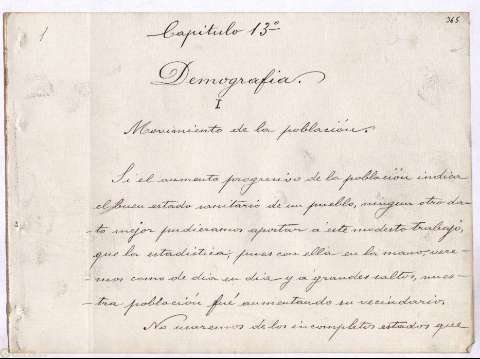 365
1
Capitulo 13º
Demografia.
I
Movimiento de la población.
Si el aumento progresivo de la población indica
el buen estado sanitario de un pueblo, ningun otro da-
to mejor pudieramos aportar á este modesto trabajo,
que la estadística, pues con ella en la mano, vere-
mos como de dia en dia y a grandes saltos, nues-
tra población fué aumentando su vecindario.
No usaremos de los incompletos estados que